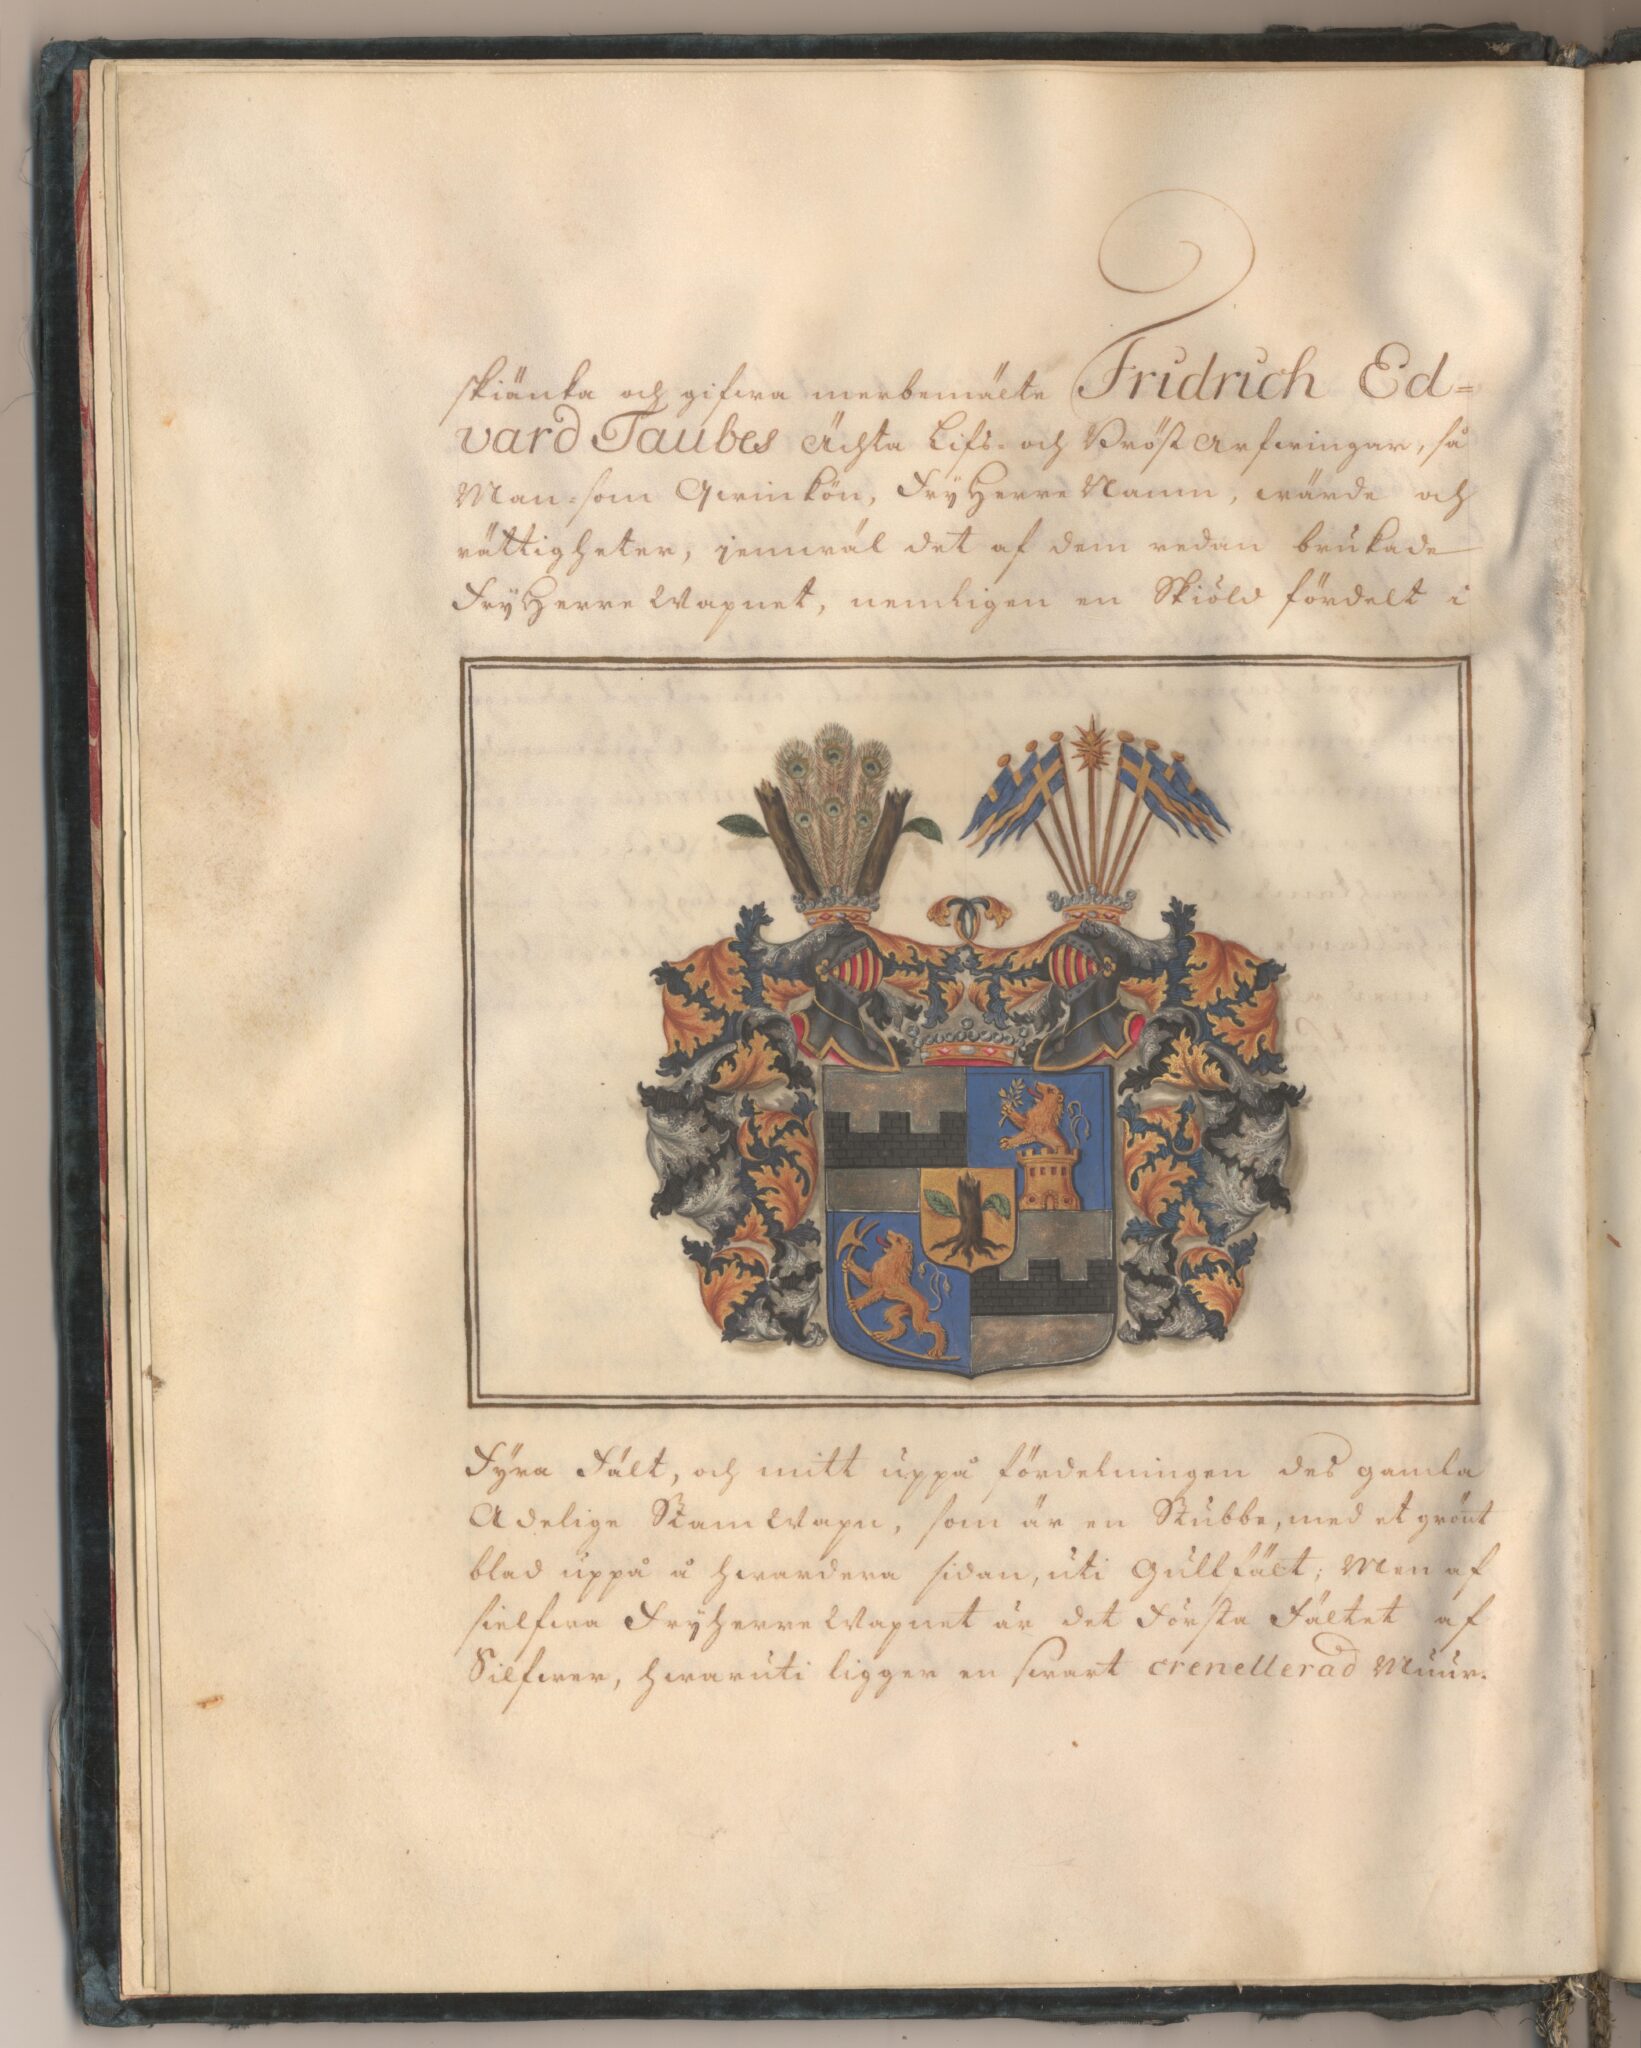 skiänka och gifwa merbemälte Fridrich Ed=
vard Taubes Ächta Lifs- och Bröst Arfwingar, så
Man-som Qwinkön, FryHerre Namn, wärde och
rättigheter, jemwäl det af dem redan brukade
FryHerre Wapnet, nemligen en Skiöld fördelt i
Fyra Fält, och mitt uppå fördelningen des gamla
Adelige StamWapn, som är en Stubbe, med et grönt
blad uppå å hwardera sidan, uti Gullfält; Men af
sielfwa FryHerreWapnet är det Första Fältet af
Silfwer, hwaruti ligger en swart crenellerad Muur.